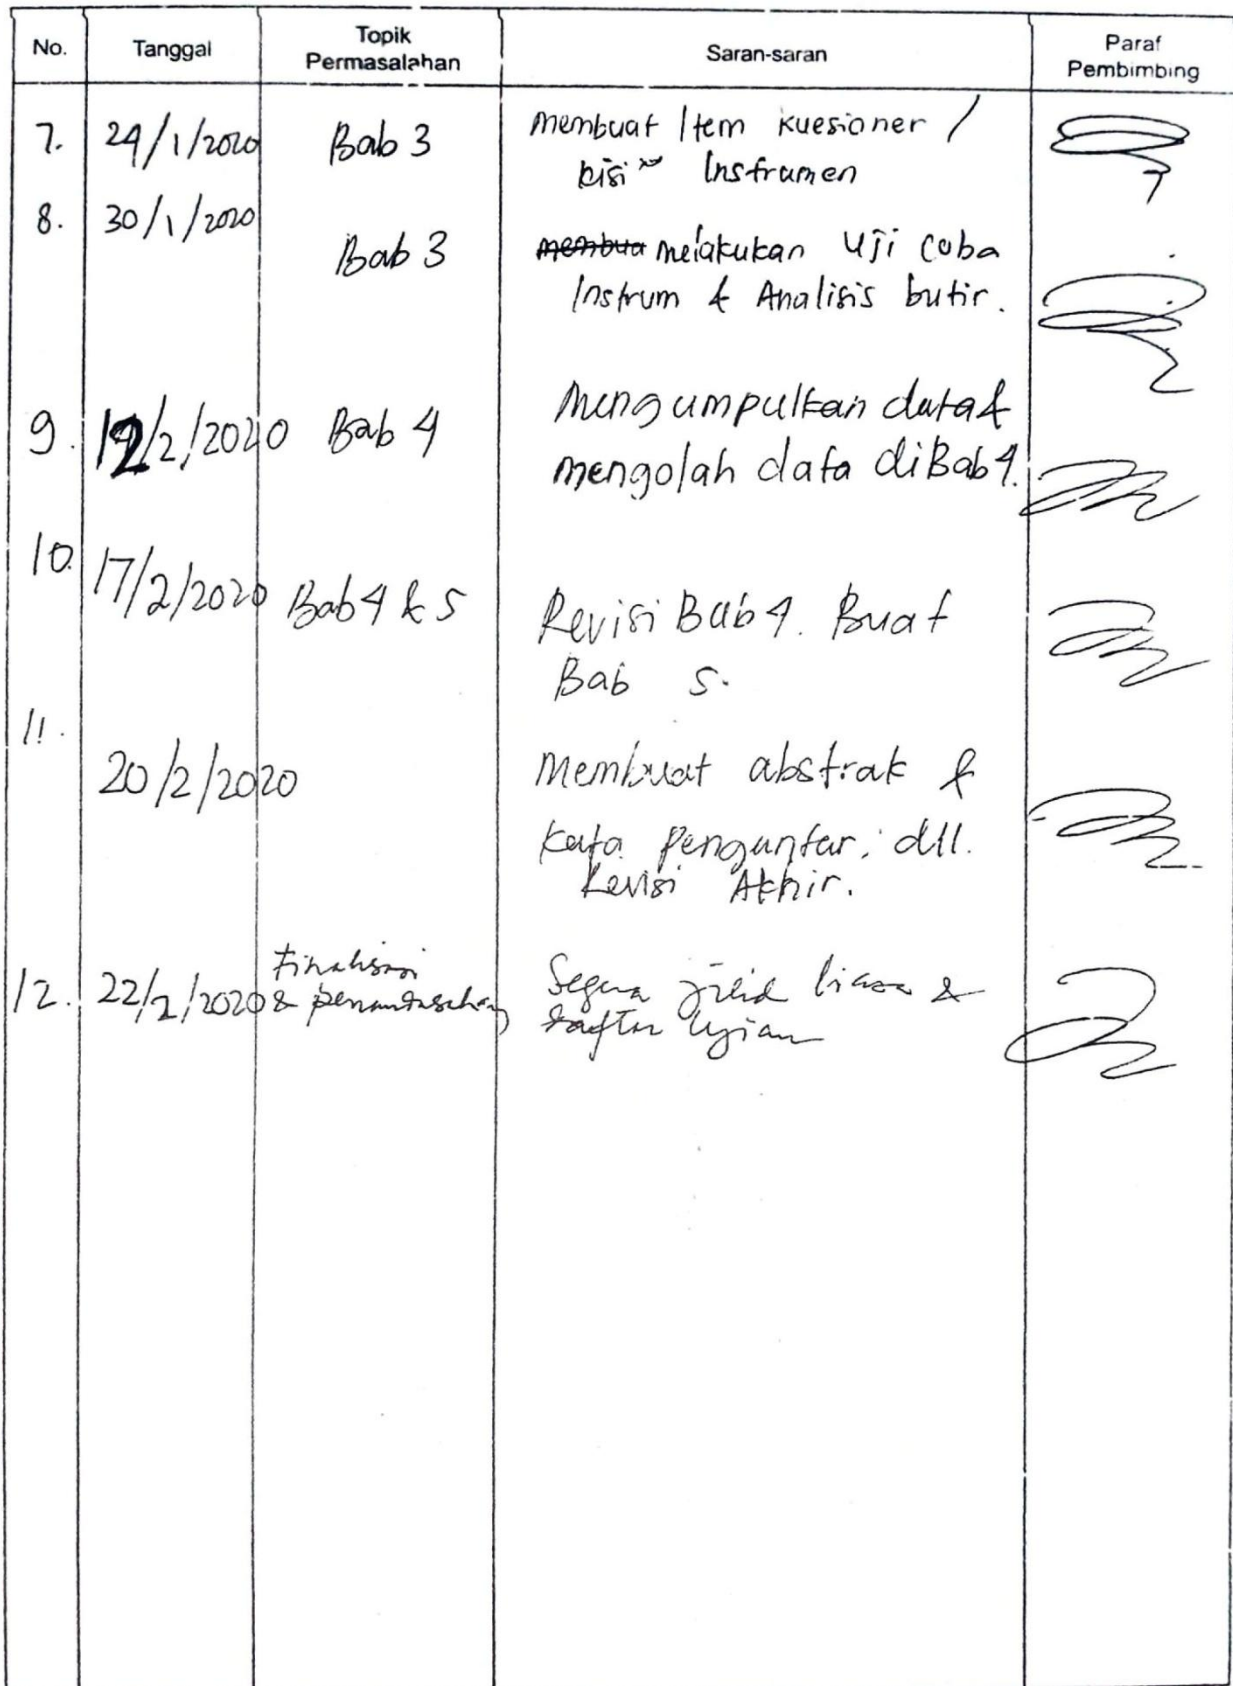 No. Tanggal Topik Permasalahan Saran-saran Paraf Pembimbing
7. 24/1/2020 Bab 3 Membuat Item kuesioner /
kisi" Instrumen
8. 30/1/2020
Bab 3 membua melakukan Uji Coba
Instrum & Analisis butir.
9. 12/2/2020 Bab 4 Mengumpulkan data &
mengolah data di Bab 4.
10. 17/2/2020 Bab 4 & 5 Revisi Bab 4. Buat
Bab 5.
11.
20/2/2020 Membuat abstrak &
Kata Pengantar, dll.
Revisi Akhir.
12. 22/2/2020 Finalisasi Segera jilid biasa &
& penandasahan daftar Ujian